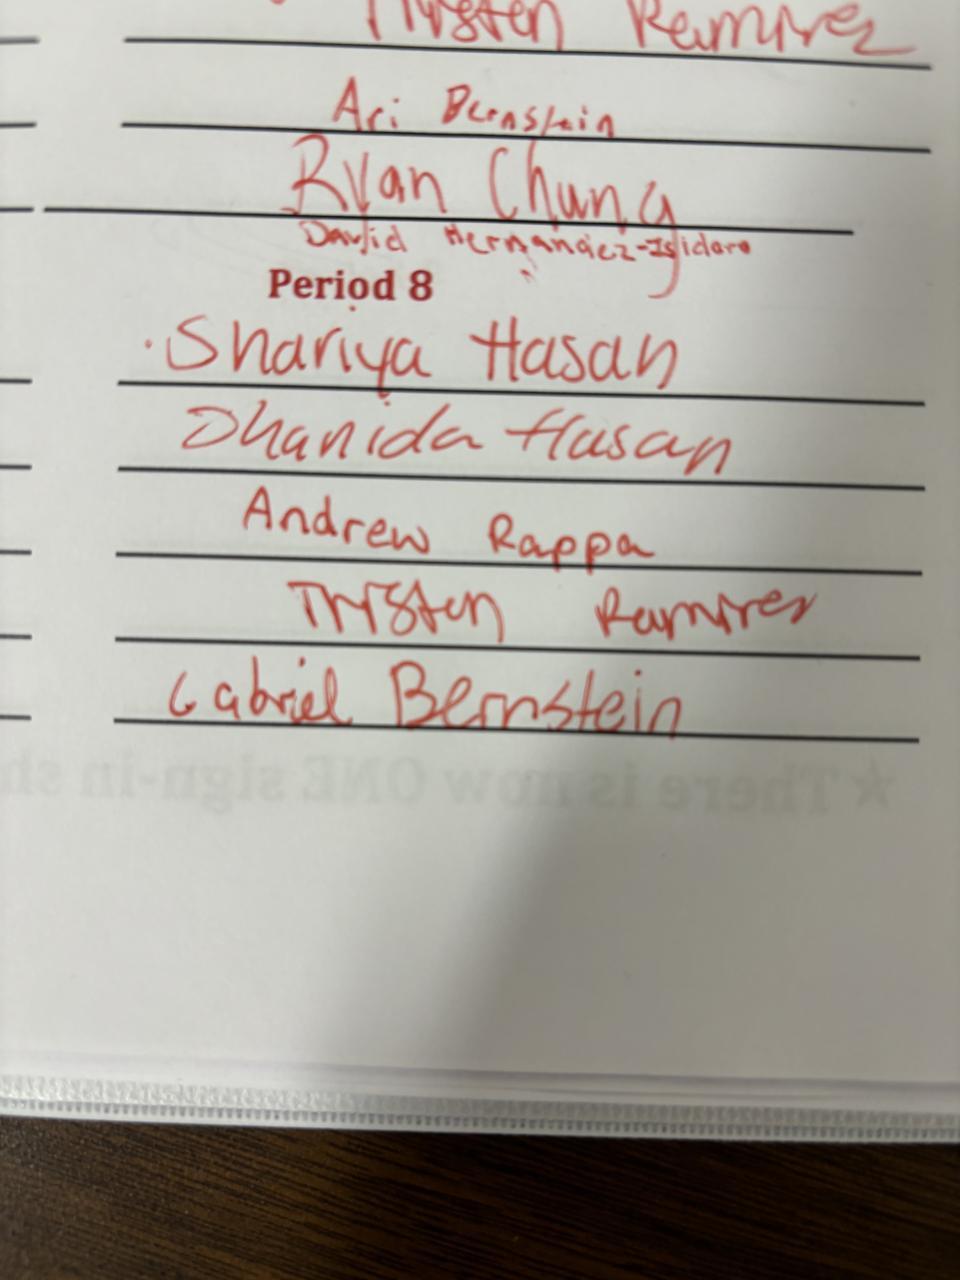 Trysten Ramirez
Ari Bernstein
Ryan Chung
David Hernandez-Isidoro
Period 8
Shariya Hasan
Dhanida Hasan
Andrew Rappa
Trysten Ramirez
Gabriel Bernstein
★There is now ONE sign-in sh